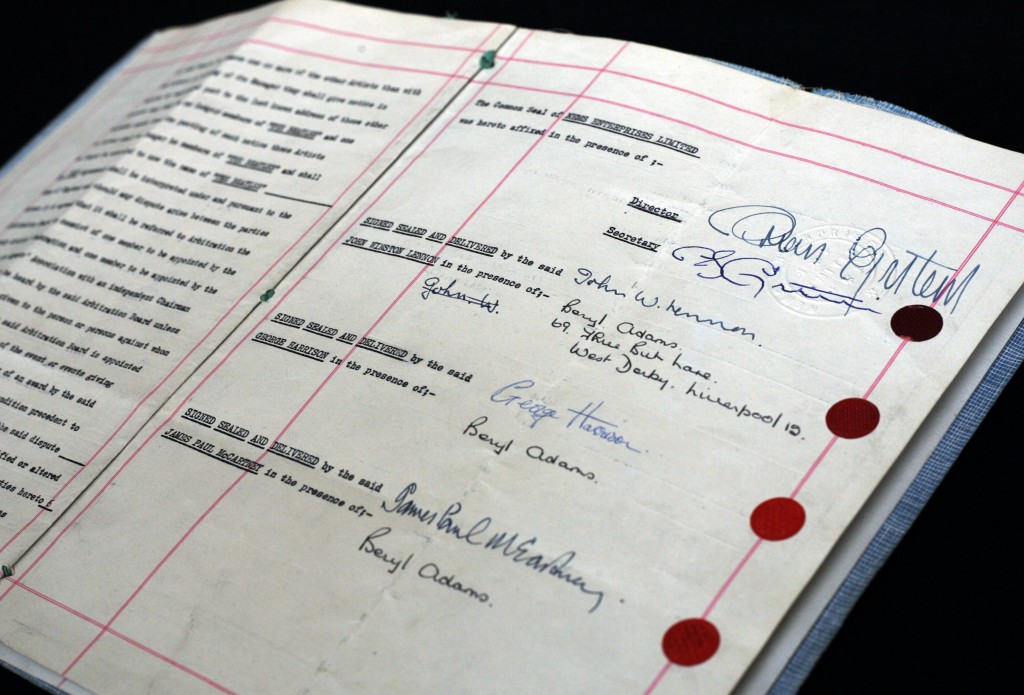 one or more of the other Artists then with
of the Manager they shall give notice in
post to the last known address of those other
no longer members of "THE BEATLES" and one
of such notice these Artists
be members of "THE BEATLES" and shall
to use the name of "THE BEATLES"
shall be interpreted under and pursuant to the
should any dispute arise between the parties
it shall be referred to Arbitration the
of one member to be appointed by the
and one member to be appointed by the
Association with an independent Chairman
by the said Arbitration Board unless
to the person or persons against whom
said Arbitration Board is appointed
of the event or events giving
of an award by the said
condition precedent to
the said dispute
or altered
hereto
The Common Seal of NEMS ENTERPRISES LIMITED
was hereto affixed in the presence of ;-
Director
Brian Epstein
Secretary
SIGNED SEALED AND DELIVERED by the said
JOHN WINSTON LENNON in the presence of;-
John W. Lennon.
John W.
Beryl Adams.
69, Three But Lane.
West Derby. Liverpool 12.
SIGNED SEALED AND DELIVERED by the said
GEORGE HARRISON in the presence of;-
George Harrison.
Beryl Adams.
SIGNED SEALED AND DELIVERED by the said
JAMES PAUL McCARTNEY in the presence of;-
James Paul McCartney.
Beryl Adams.